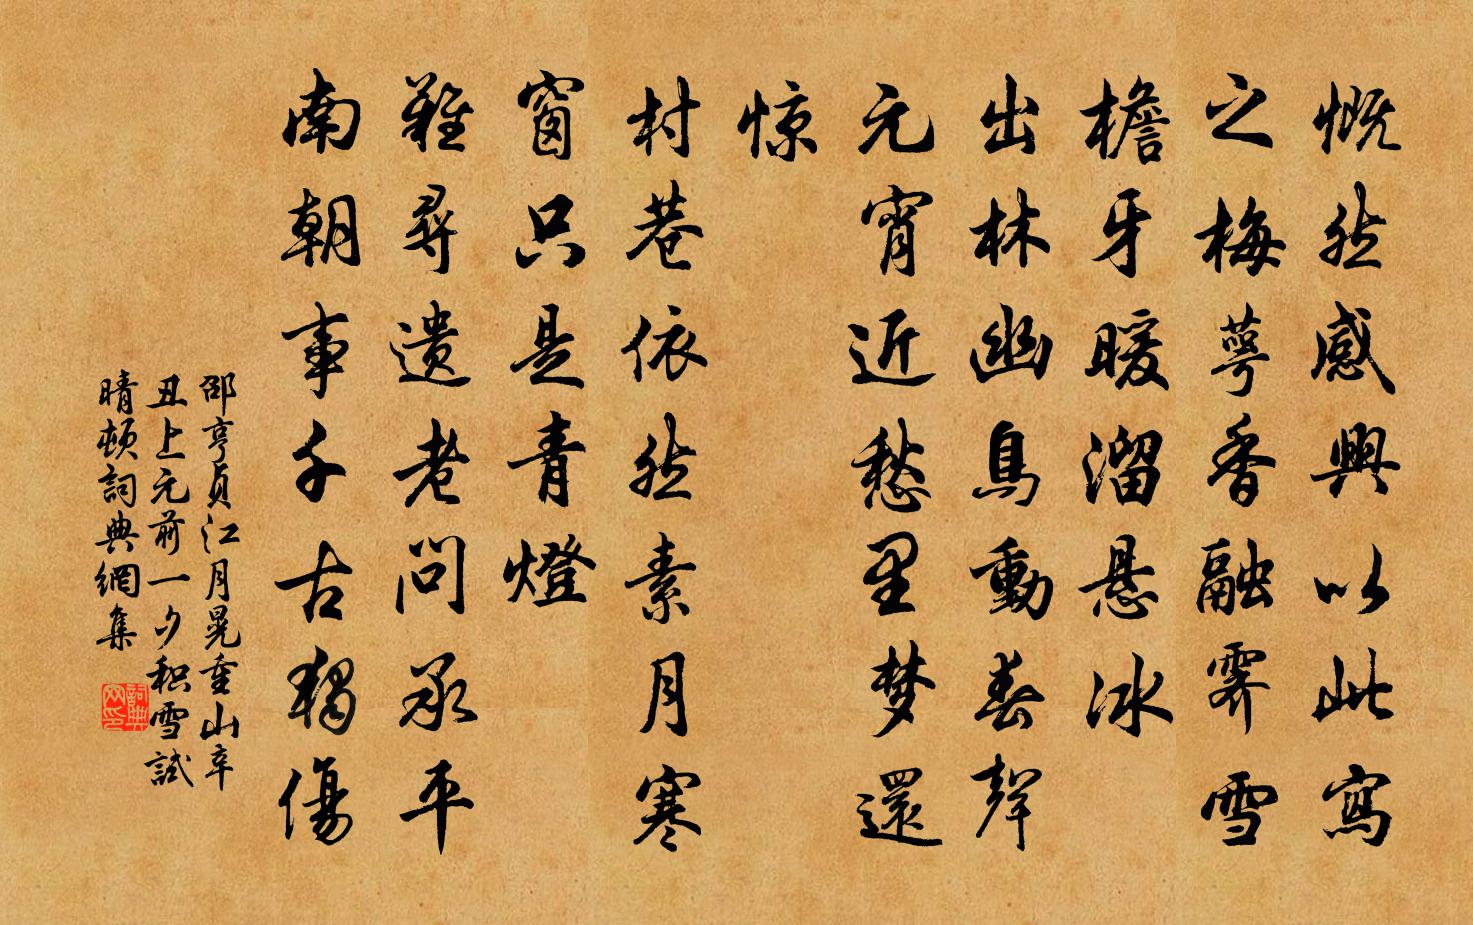 慨然感興以此寫
之梅萼香融霽雪
檐牙暖溜悬冰
出林幽鳥動春聲
元宵近愁里梦還
惊
村巷依然素月寒
窗只是青燈
難尋遗老問承平
南朝事千古獨傷
邵亨貞江月晃重山辛
丑上元前一夕积雪試
晴頓詞典網集
詞典网印